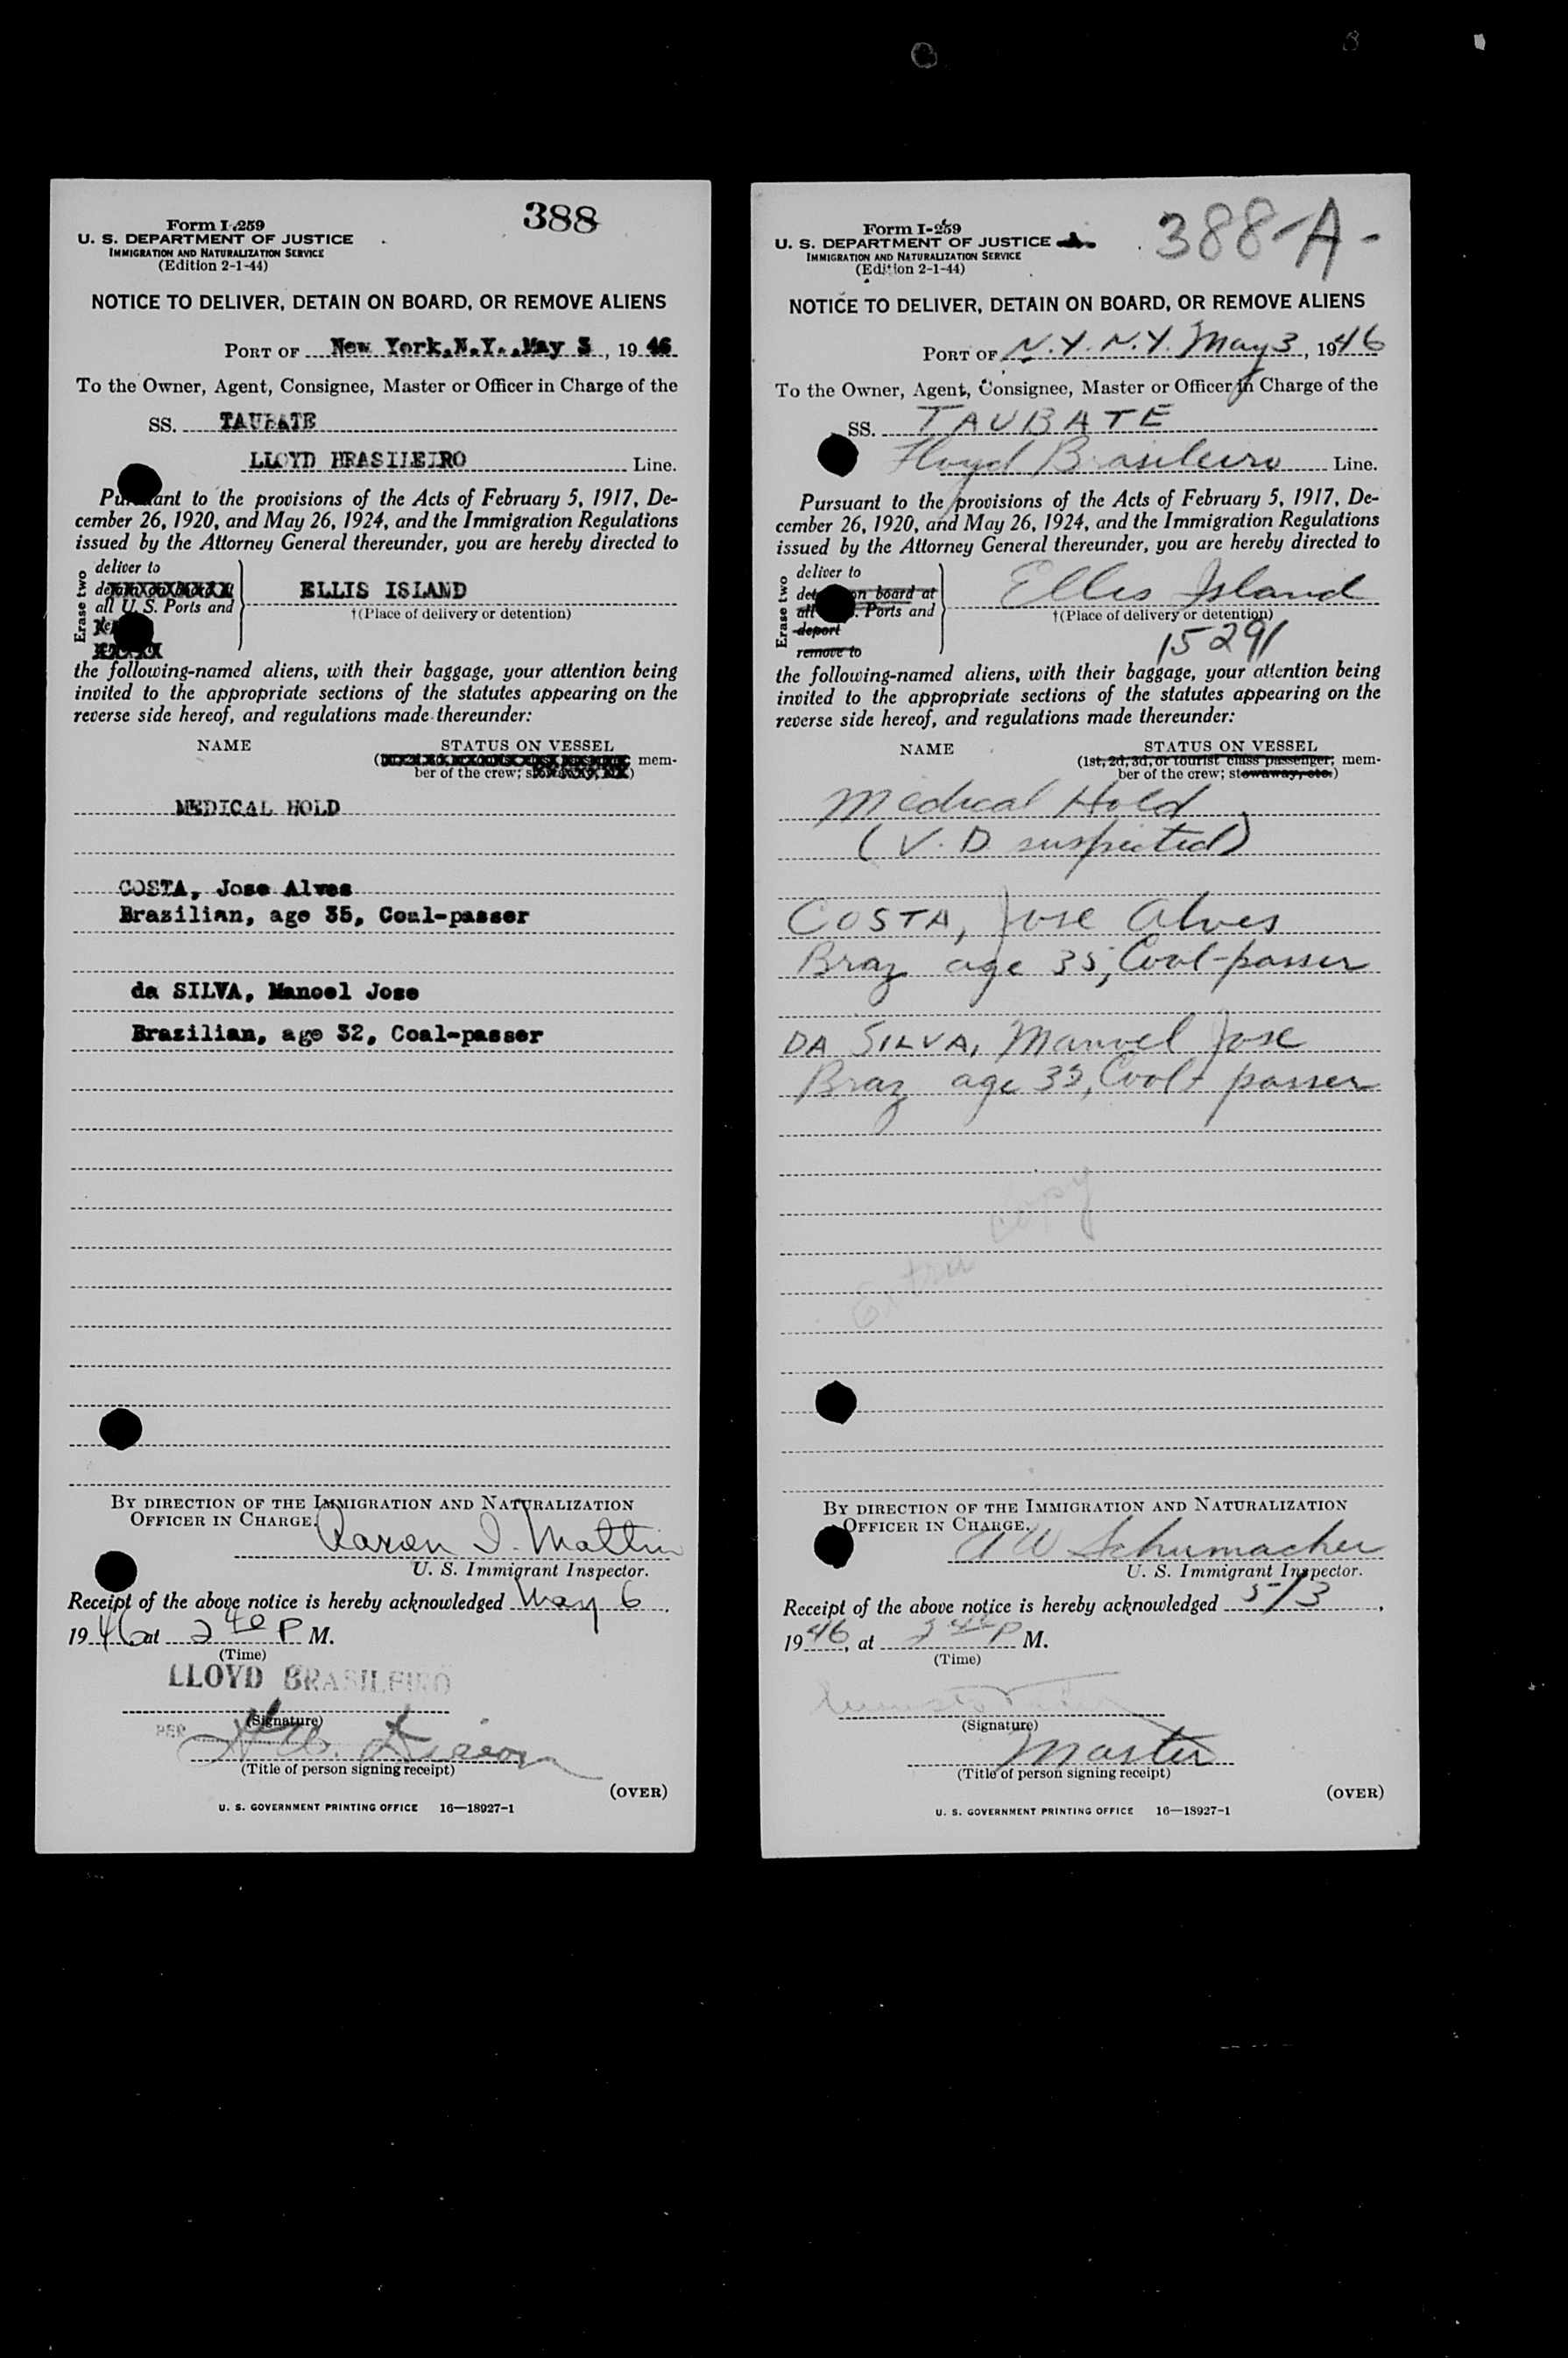 388
Form I-259
U. S. DEPARTMENT OF JUSTICE
IMMIGRATION AND NATURALIZATION SERVICE
(Edition 2-1-44)
NOTICE TO DELIVER, DETAIN ON BOARD, OR REMOVE ALIENS
PORT OF New York, N.Y., May 3, 19 46
To the Owner, Agent, Consignee, Master or Officer in Charge of the
SS. TAUBATE
LLOYD BRASILEIRO Line.
Pursuant to the provisions of the Acts of February 5, 1917, De-
cember 26, 1920, and May 26, 1924, and the Immigration Regulations
issued by the Attorney General thereunder, you are hereby directed to
Erase two
deliver to
all U. S. Ports and
ELLIS ISLAND
†(Place of delivery or detention)
the following-named aliens, with their baggage, your attention being
invited to the appropriate sections of the statutes appearing on the
reverse side hereof, and regulations made thereunder:
NAME STATUS ON VESSEL
mem-
ber of the crew;
MEDICAL HOLD
COSTA, Jose Alves
Brazilian, age 35, Coal-passer
da SILVA, Manoel Jose
Brazilian, age 32, Coal-passer
BY DIRECTION OF THE IMMIGRATION AND NATURALIZATION
OFFICER IN CHARGE.
Aaron I. Maltin
U. S. Immigrant Inspector.
Receipt of the above notice is hereby acknowledged May 6,
1946 at 2 40 P M.
(Time)
LLOYD BRASILEIRO
(Signature)
PER
(Title of person signing receipt)
(OVER)
U. S. GOVERNMENT PRINTING OFFICE 16—18927-1
388-A-
Form I-259
U. S. DEPARTMENT OF JUSTICE
IMMIGRATION AND NATURALIZATION SERVICE
(Edition 2-1-44)
NOTICE TO DELIVER, DETAIN ON BOARD, OR REMOVE ALIENS
PORT OF N.Y. N.Y. May 3, 1946
To the Owner, Agent, Consignee, Master or Officer in Charge of the
SS. TAUBATE
Lloyd Brasileiro Line.
Pursuant to the provisions of the Acts of February 5, 1917, De-
cember 26, 1920, and May 26, 1924, and the Immigration Regulations
issued by the Attorney General thereunder, you are hereby directed to
Erase two
deliver to
on board at
all Ports and
deport
remove to
Ellis Island
†(Place of delivery or detention)
15291
the following-named aliens, with their baggage, your attention being
invited to the appropriate sections of the statutes appearing on the
reverse side hereof, and regulations made thereunder:
NAME STATUS ON VESSEL
(1st, 2d, 3d, or tourist class passenger; mem-
ber of the crew; stowaway, etc.)
Medical Hold
(V. D suspected)
COSTA, Jose Alves
Braz age 35, Coal-passer
DA SILVA, Manoel Jose
Braz age 32, Coal passer
Extra copy
BY DIRECTION OF THE IMMIGRATION AND NATURALIZATION
OFFICER IN CHARGE.
A W Schumacher
U. S. Immigrant Inspector.
Receipt of the above notice is hereby acknowledged 5/3,
1946, at P M.
(Time)
(Signature)
Master
(Title of person signing receipt)
(OVER)
U. S. GOVERNMENT PRINTING OFFICE 16—18927-1